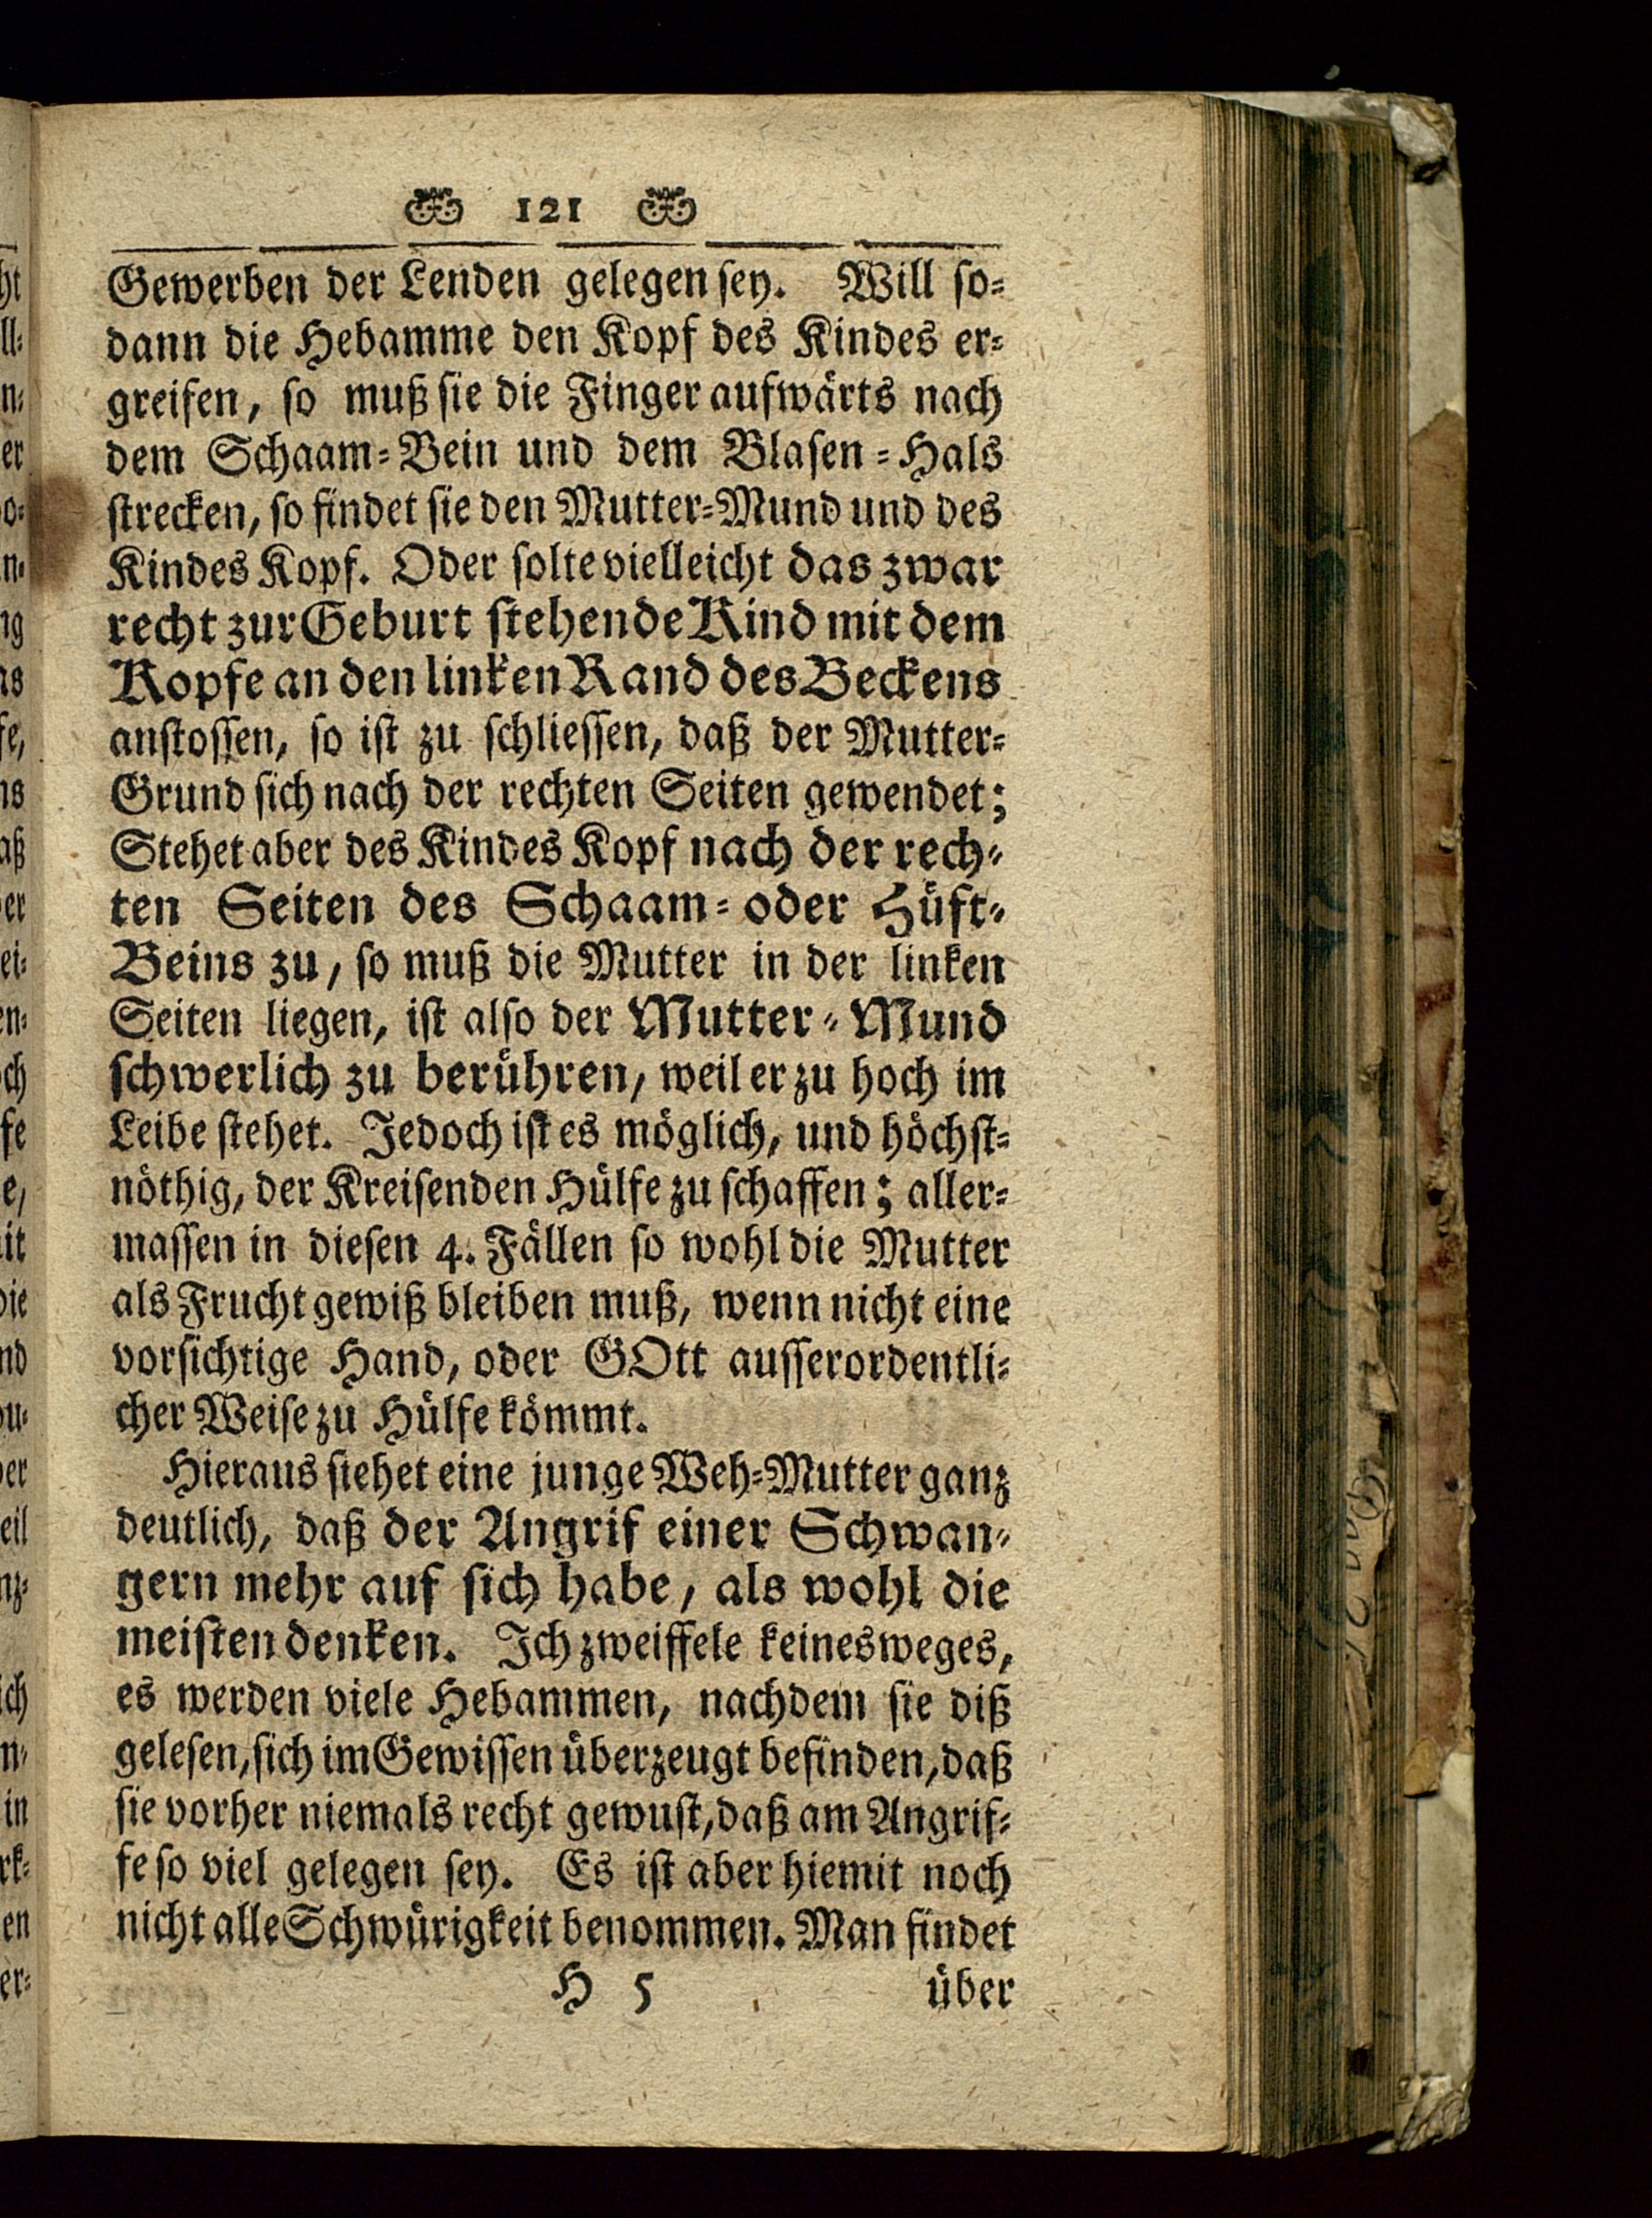 121
Gewerben der Lenden gelegen sey. Will so-
dann die Hebamme den Kopf des Kindes er-
greifen, so muß sie die Finger aufwärts nach
dem Schaam-Bein und dem Blasen-Hals
strecken, so findet sie den Mutter-Mund und des
Kindes Kopf. Oder solte vielleicht das zwar
recht zur Geburt stehende Kind mit dem
Kopfe an den linken Rand des Beckens
anstossen, so ist zu schliessen, daß der Mutter-
Grund sich nach der rechten Seiten gewendet;
Stehet aber des Kindes Kopf nach der rech-
ten Seiten des Schaam- oder Hüft-
Beins zu, so muß die Mutter in der linken
Seiten liegen, ist also der Mutter-Mund
schwerlich zu berühren, weil er zu hoch im
Leibe stehet. Jedoch ist es möglich, und höchst-
nöthig, der Kreisenden Hülfe zu schaffen; aller-
massen in diesen 4. Fällen so wohl die Mutter
als Frucht gewiß bleiben muß, wenn nicht eine
vorsichtige Hand, oder GOtt ausserordentli-
cher Weise zu Hülfe kömmt.
Hieraus siehet eine junge Weh-Mutter ganz
deutlich, daß der Angrif einer Schwan-
gern mehr auf sich habe, als wohl die
meisten denken. Ich zweiffele keinesweges,
es werden viele Hebammen, nachdem sie diß
gelesen, sich im Gewissen überzeugt befinden, daß
sie vorher niemals recht gewust, daß am Angrif-
fe so viel gelegen sey. Es ist aber hiemit noch
nicht alle Schwürigkeit benommen. Man findet
H 5 über